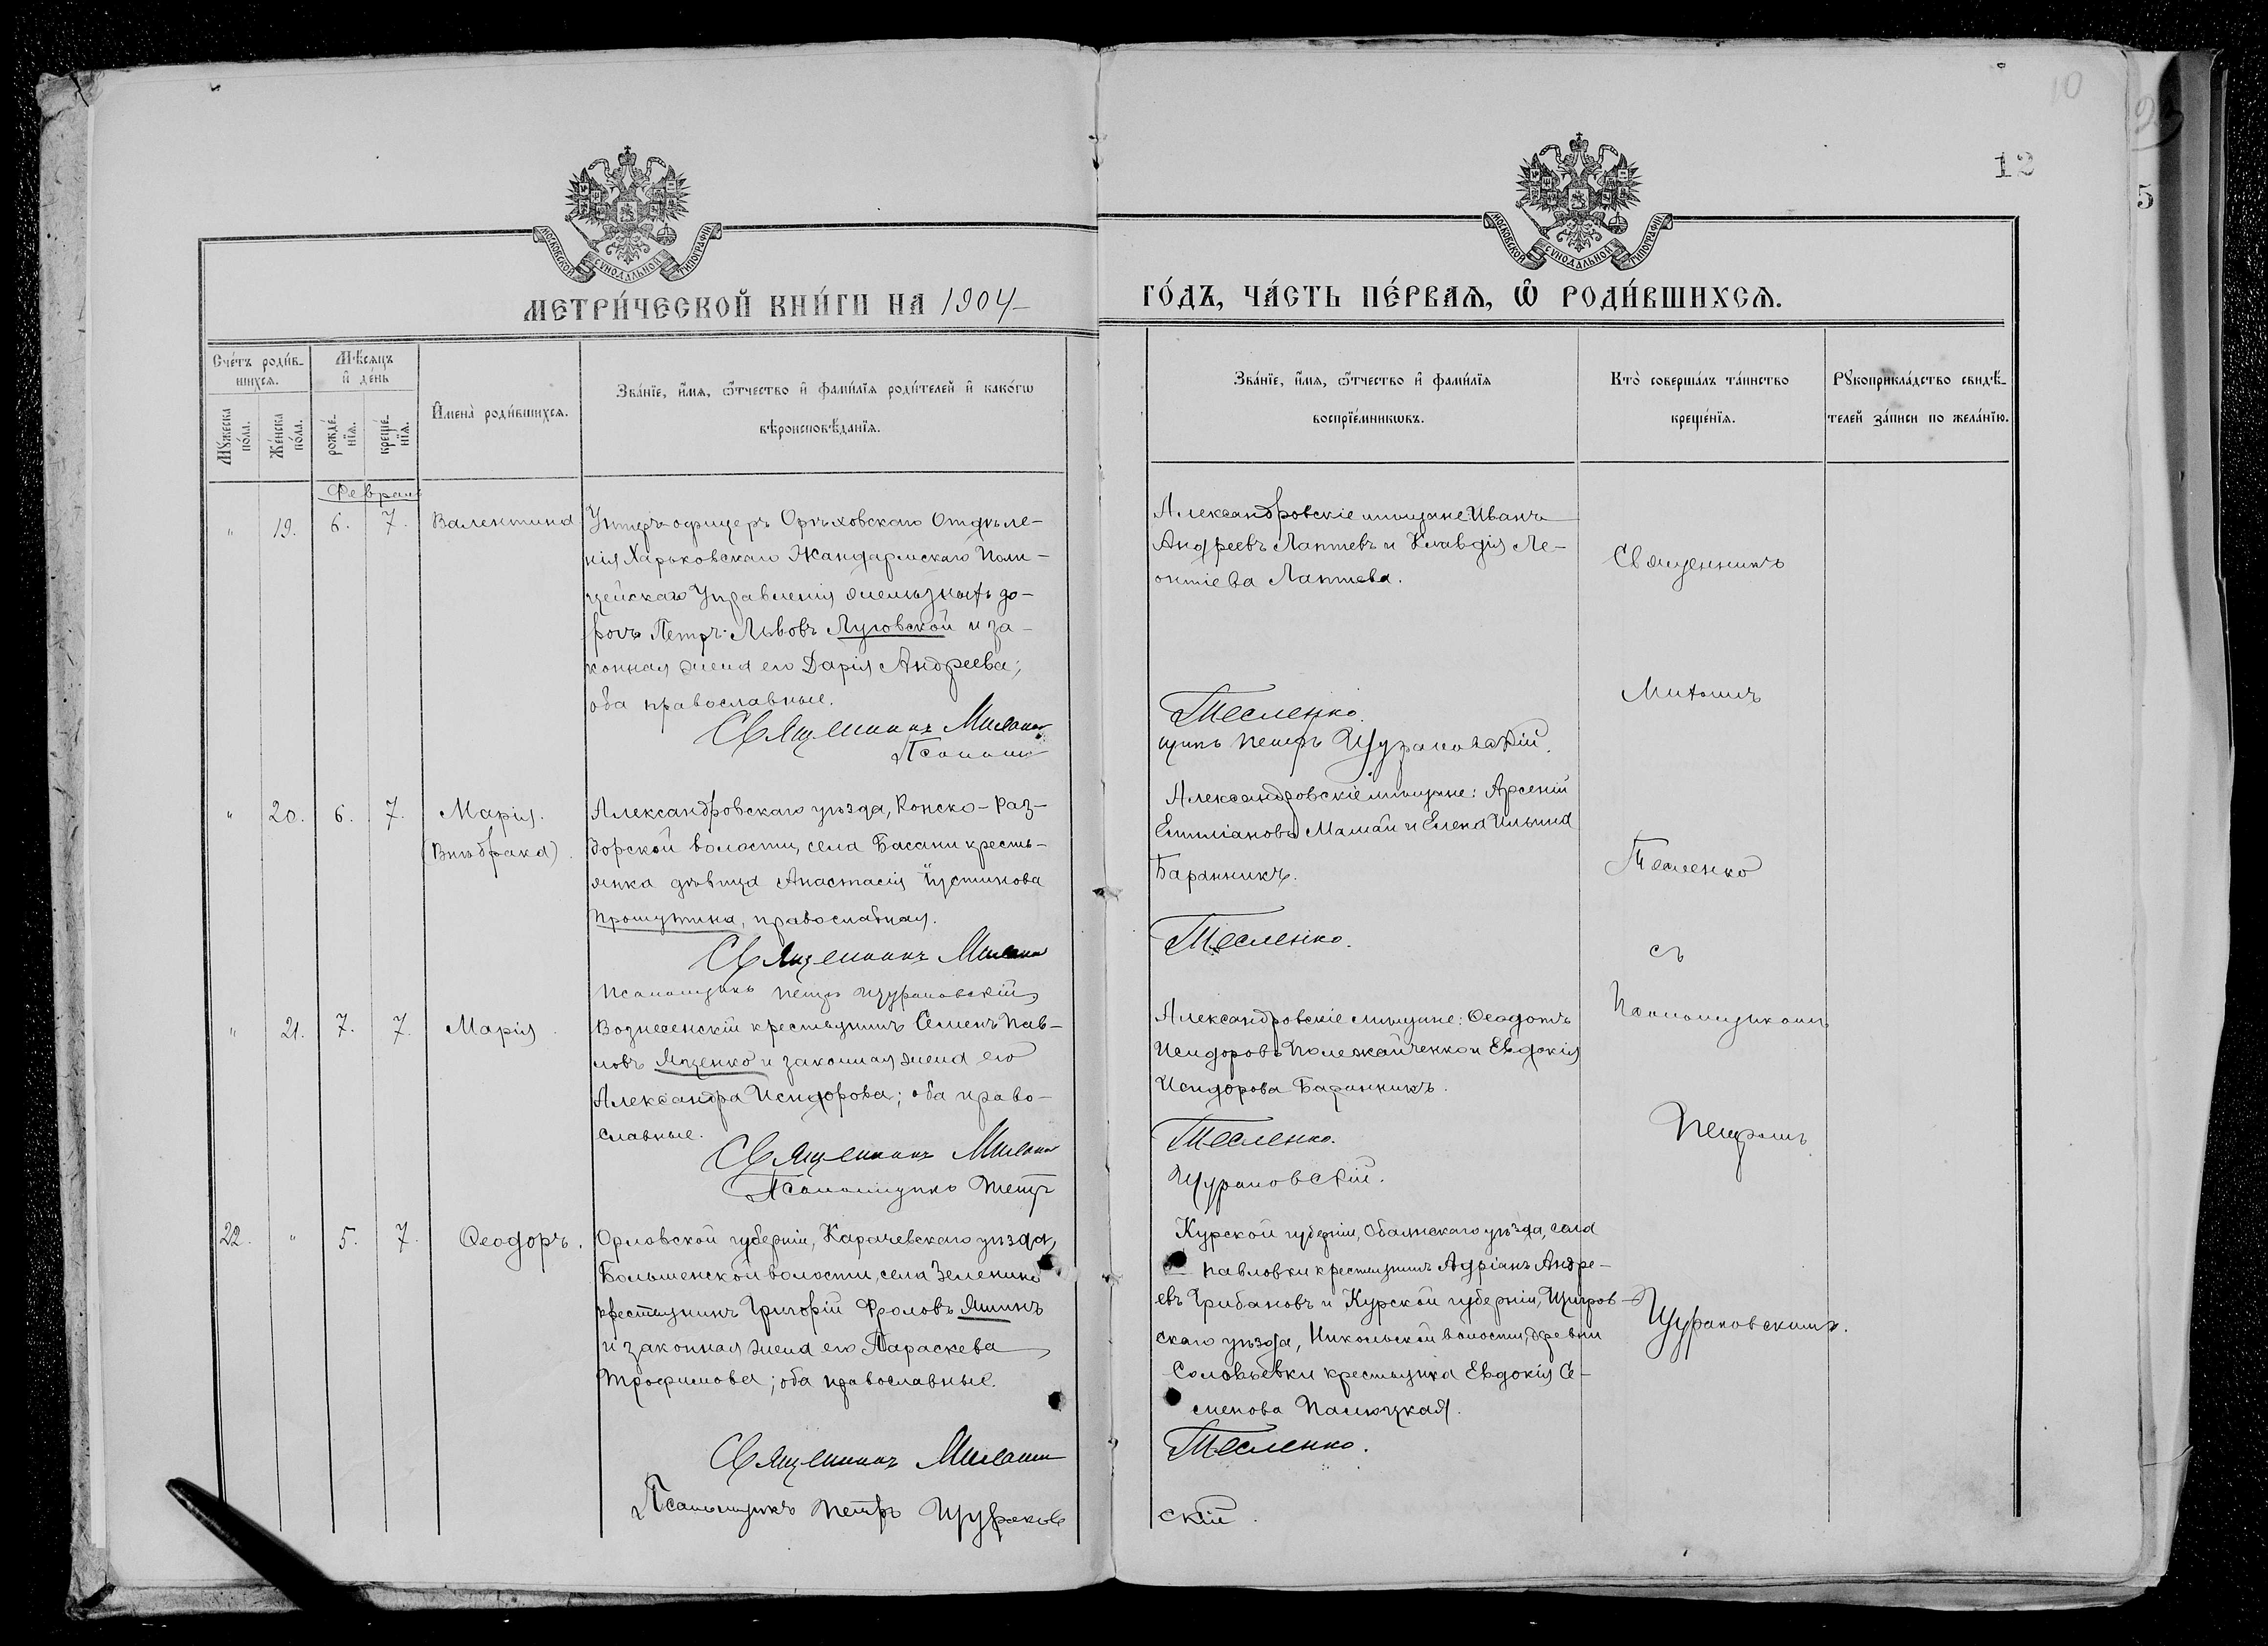 10
12
5
МОСКОВСКОЙ СУНОДАЛЬНОЙ ТИПОГРАФІИ
МОСКОВСКОЙ СУНОДАЛЬНОЙ ТИПОГРАФІИ
МЕТРИ́ЧЕСКОЙ КНИ́ГИ НА 1904
ГО́ДЪ, ЧА́СТЬ ПЕ́РВАѦ, Ѡ РОДИ́ВШИХСѦ.
Сче́тъ роди́в-
шихсѧ.
Мѣ́сѧцъ
и҆ де́нь
Мꙋ́жеска
по́ла.
Же́нска
по́ла.
рожде́-
нїѧ.
креще́-
нїѧ.
И҆мена̀ роди́вшихсѧ.
Зва́нїе, и҆́мѧ, ѻ҆́тчество и҆ фами́лїѧ роди́телей и҆ како́гѡ
вѣроисповѣ́данїѧ.
Зва́нїе, и҆́мѧ, ѻ҆́тчество и҆ фами́лїѧ
воспрїе́мникѡвъ.
Кто̀ соверша́лъ та́инство
креще́нїѧ.
Рꙋкоприкла́дство свидѣ́-
телей за́писи по жела́нїю.
Февраль
" 19. 6. 7. Валентина
Унтеръ-офицеръ Орѣховскаго Отдѣле-
нія Харьковскаго Жандармскаго Поли-
цейскаго Управленія желѣзныхъ до-
рогъ Петръ Львовъ Луговской и за-
конная жена его Дарія Андреева;
оба православные.
Священникъ Митаин
Псалом
Александровскіе мѣщане Иванъ
Андреевъ Лаптевъ и Клавдія Ле-
онтіева Лаптева.
Тесленко.
щикъ Петръ Щураковскій.
Священникъ
" 20. 6. 7. Марія.
(Внѣ брака).
Александровскаго уѣзда, Конско-Раз-
дорской волости, села Басани кресть-
янка дѣвица Анастасія Іустинова
Прошутина, православная.
Священникъ
Псаломщикъ Петръ Щураковскій
Александровскіе мѣщане: Арсеній
Емиліановъ Мамай и Елена Ильина
Баранникъ.
Тесленко.
Тесленко
съ
" 21. 7. 7. Марія
Вознесенскій крестьянинъ Семенъ Пав-
ловъ Яценко и законная жена его
Александра Исидорова; оба право-
славные.
Священникъ
Псаломщикъ Петръ
Александровскіе мѣщане: Ѳеодотъ
Исидоровъ Полежайченко и Евдокія
Исидорова Баранникъ.
Тесленко.
Щураковскій.
Псаломщикомъ
Петромъ
22. " 5. 7. Ѳеодоръ.
Орловской губерніи, Карачевскаго уѣзда,
волости, села Зеленино
крестьянинъ Григорій Фроловъ Яшинъ
и законная жена его Параскева
Трофимова; оба православные.
Священникъ
Псаломщикъ Петръ Щураков
Курской губерніи, Обаянскаго уѣзда, села
Павловки крестьянинъ Адріанъ Андре-
евъ Грибановъ и Курской губерніи, Щигров-
скаго уѣзда, Никольской волости, деревни
Соловьевки крестьянка Евдокія Се-
менова
Тесленко.
скій.
Щураковскимъ.